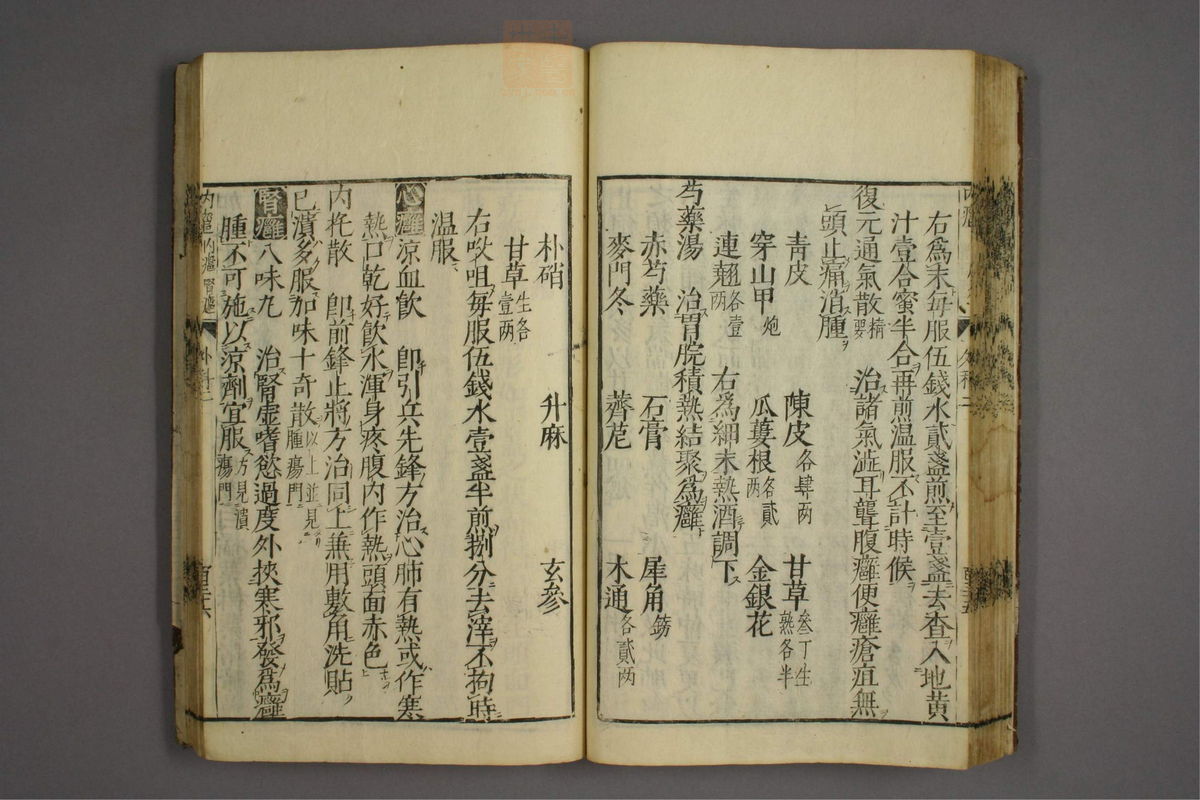 右爲末每服伍錢水貳盞煎至壹盞去査入地黄
汁壹合蜜半合再煎温服不計時候
復元通氣散精要 治諸氣澁耳聾腹癰便癰瘡疽無
頭止痛消腫
青皮 陳皮各肆兩 甘草叁丁生熟各半
穿山甲炮 瓜蔞根各貳兩 金銀花
連翹各壹兩 右爲細末熱酒調下
芍藥湯 治胃脘積熱結聚爲癰
赤芍藥 石膏 犀角鎊
麥門冬 薺苨 木通各貳兩
朴硝 升麻 玄參
甘草生各壹兩
右㕮咀每服伍錢水壹盞半煎捌分去滓不拘時
温服
心癰 涼血飲 卽引兵先鋒方治心肺有熱或作寒
熱口乾好飲水渾身疼腹内作熱頭面赤色
内托散 卽前鋒止將方治同上兼用敷角洗貼
已潰多服加味十奇散以上並見腫瘍門
腎癰 八味丸 治腎虛嗜慾過度外挾寒邪發爲癰
腫不可施以涼劑宜服方見潰瘍門
内癰 心癰 腎癰 外科二